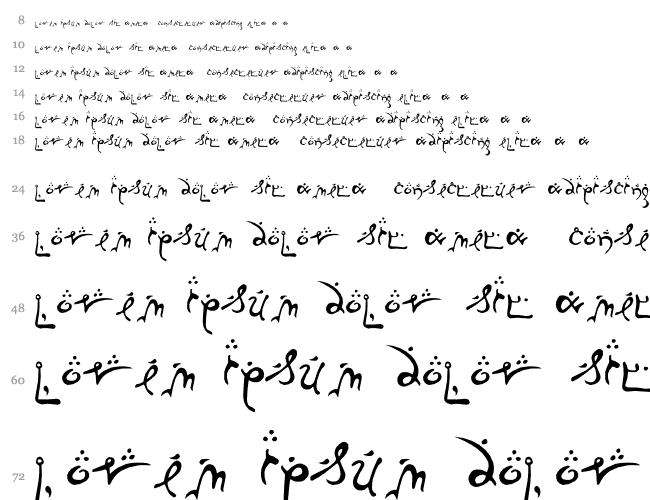 8 lorem ipsum dolor sit ameta consectetuer adipiscing elita a a
10 lorem ipsum dolor sit ameta consectetuer adipiscing elita a a
12 lorem ipsum dolor sit ameta consectetuer adipiscing elita a a
14 lorem ipsum dolor sit ameta consectetuer adipiscing elita a a
16 lorem ipsum dolor sit ameta consectetuer adipiscing elita a a
18 lorem ipsum dolor sit ameta consectetuer adipiscing elita a a
24 lorem ipsum dolor sit ameta consectetuer adipiscing
36 lorem ipsum dolor sit ameta conse
48 lorem ipsum dolor sit amet
60 lorem ipsum dolor sit
72 lorem ipsum dolor